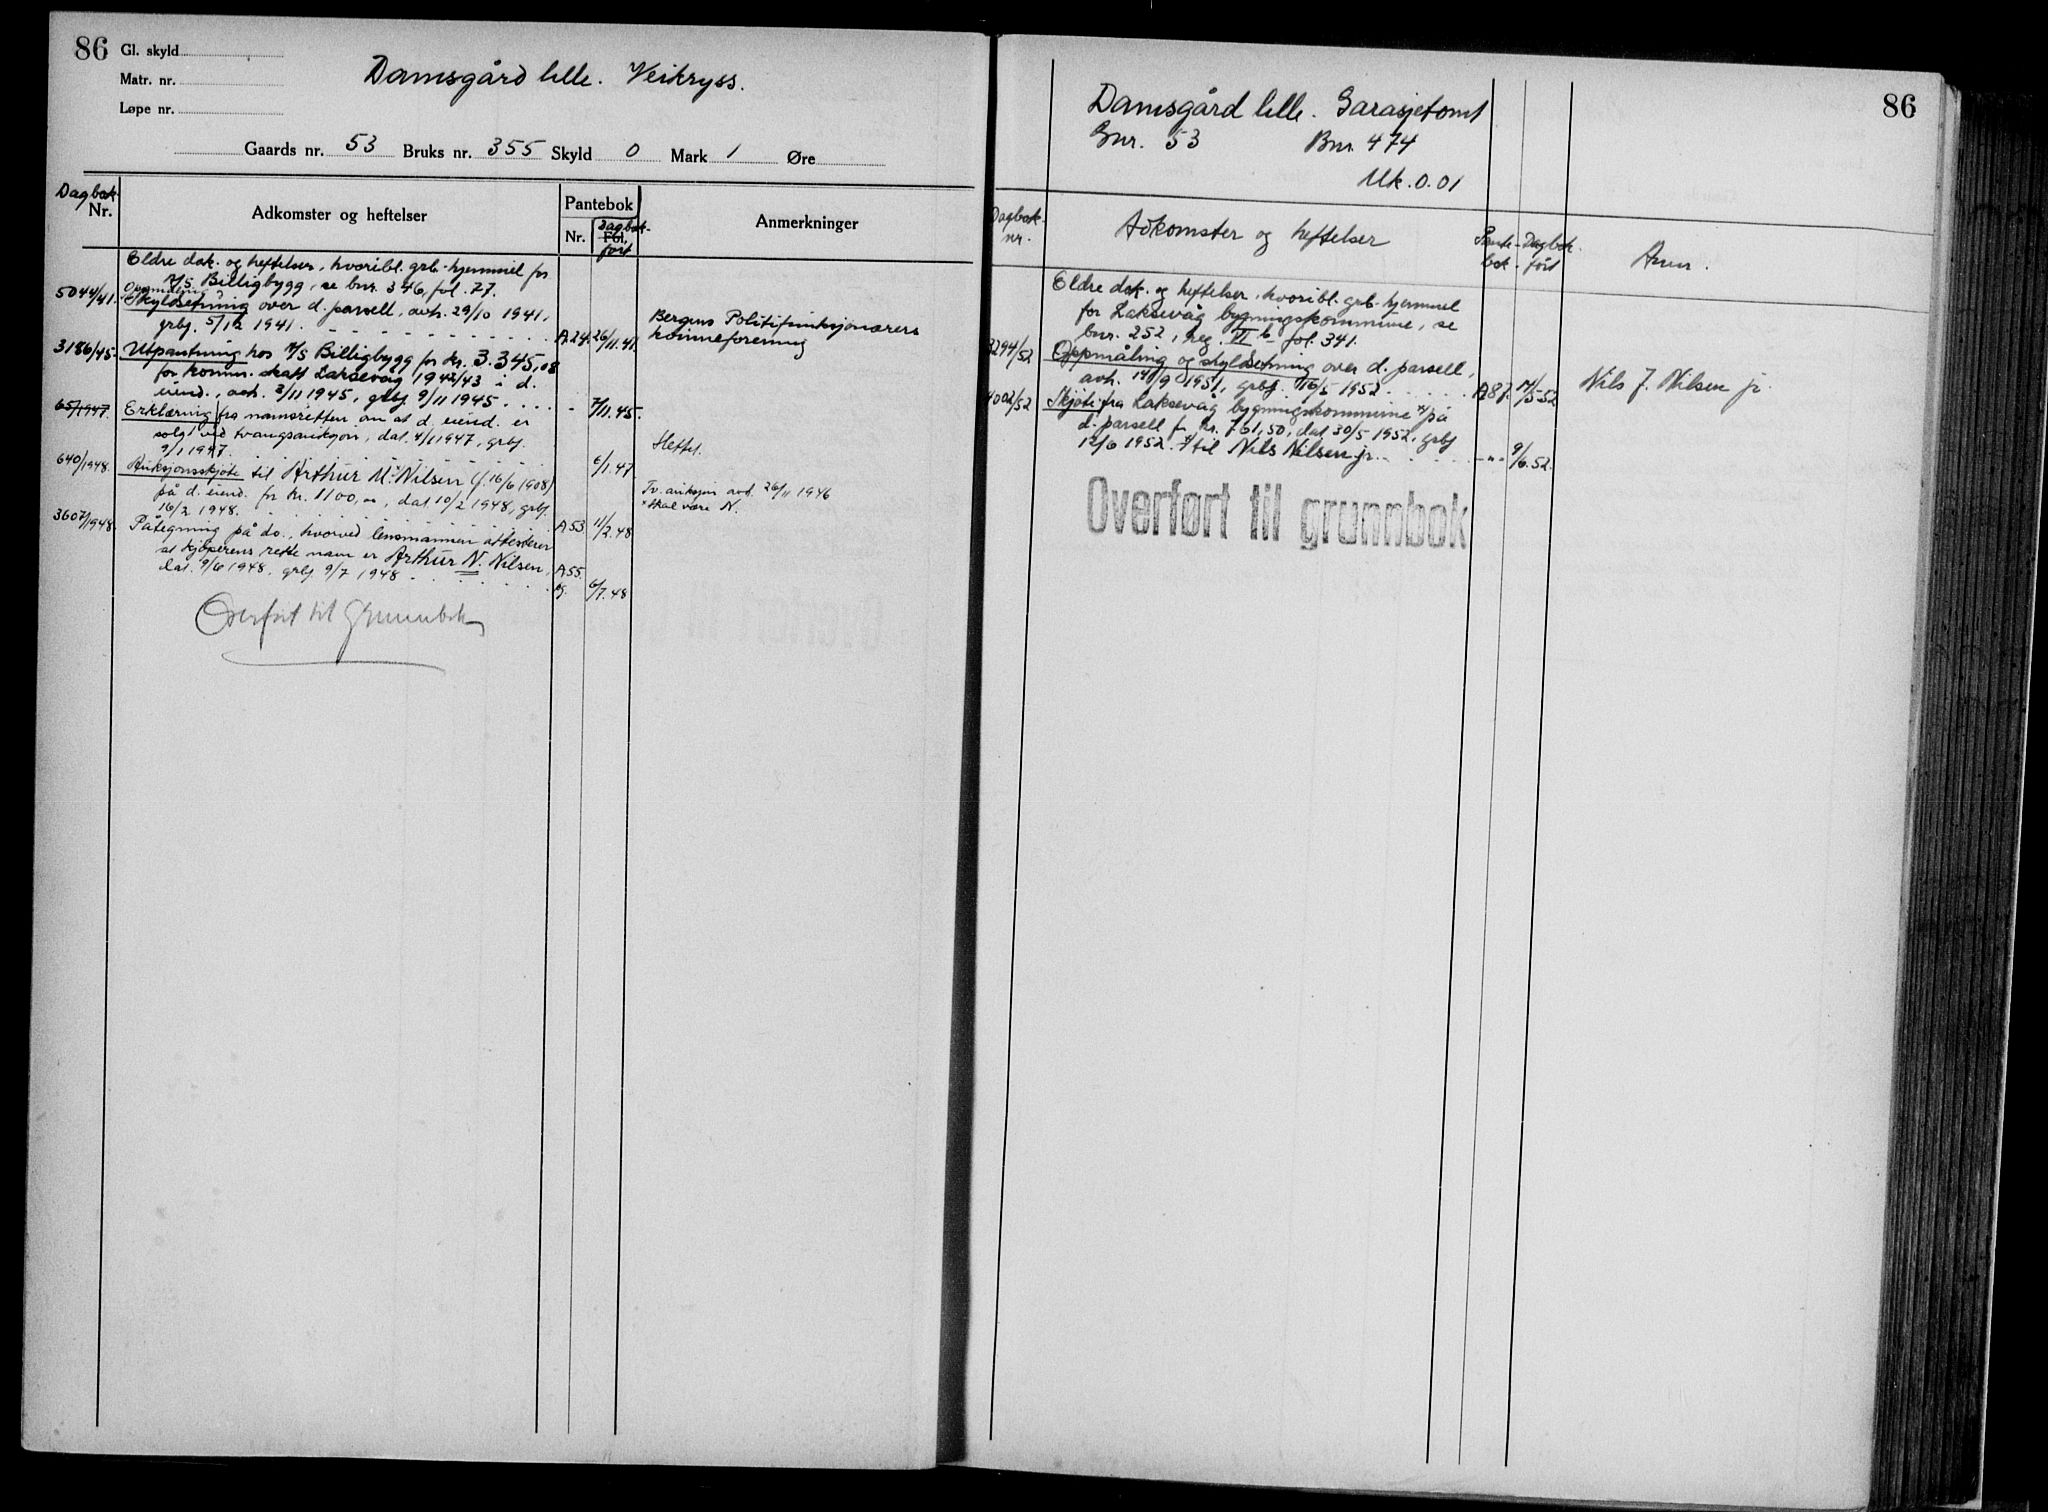 86
Gl. skyld
Matr. nr.
Løpe nr.
Damsgård lille. Veikryss.
Gaards nr. 53 Bruks nr. 355 Skyld 0 Mark 1 Øre
Dagbok
Nr.
Adkomster og heftelser
Pantebok
Nr.
Dagbok-
Fol.
ført
Anmerkninger
Eldre dok. og heftelser, hvoribl. grb.-hjemmel for
A/S Billigbygg, se bnr. 346, fol. 27.
5044/41. Skyldsetning over d. parsell, avh. 29/10 1941,
grbf. 5/12 1941. A 24. 26/11.41.
Bergens Politifunksjonærers
kvinneforening
3186/45. Utpantning hos A/S Billigbygg for kr. 3.345,08
for komm. skatt Laksevåg 1942/43 i d.
eiend., avh. 3/11 1945, grbf 9/11 1945. 7/11.45.
65/1947. Erklæring fra namsretten om at d. eiend. er
solgt ved tvangsauksjon, dat. 4/1 1947, grbf.
9/1 1947. 6/1.47
Slettet.
640/1948. Auksjonsskjøte til Arthur M. Nilsen (f. 16/6 1908)
på d. eiend. for kr. 1100,00, dat 10/2 1948, grbf.
16/2 1948. A 53 11/2.48
Tv. auksjon avh. 26/11 1946
* skal være N.
3607/1948. Påtegning på do., hvorved lensmannen attesterer
at kjøperens rette navn er Arthur N. Nilsen,
dat. 9/6 1948, grbf 9/7 1948 A 55. 6/7.48
Overført til Grunnbok
86
Damsgård lille. Garasjetomt
Gnr. 53 Bnr. 474
Mk. 0.01
Dagbok-
nr.
Adkomster og heftelser
Pante-
bok
Dagbok-
ført
Anm.
Eldre dok. og heftelser, hvoribl. grb.-hjemmel
for Laksevåg bygningskommune, se
bnr. 252, reg. VI b fol. 341.
3294/52 Oppmåling og skyldsetning over d. parsell,
avh. 14/9 1951, grbf. 16/5 1952. A 87. 14/5-52
Nils J. Nilsen jr.
4002/52 Skjøte fra Laksevåg bygningskommune på
d. parsell for kr. 761,50, dat 30/5 1952, grbf
12/6 1952. til Nils Nilsen jr. -"- 9/6.52.
Overført til grunnbok